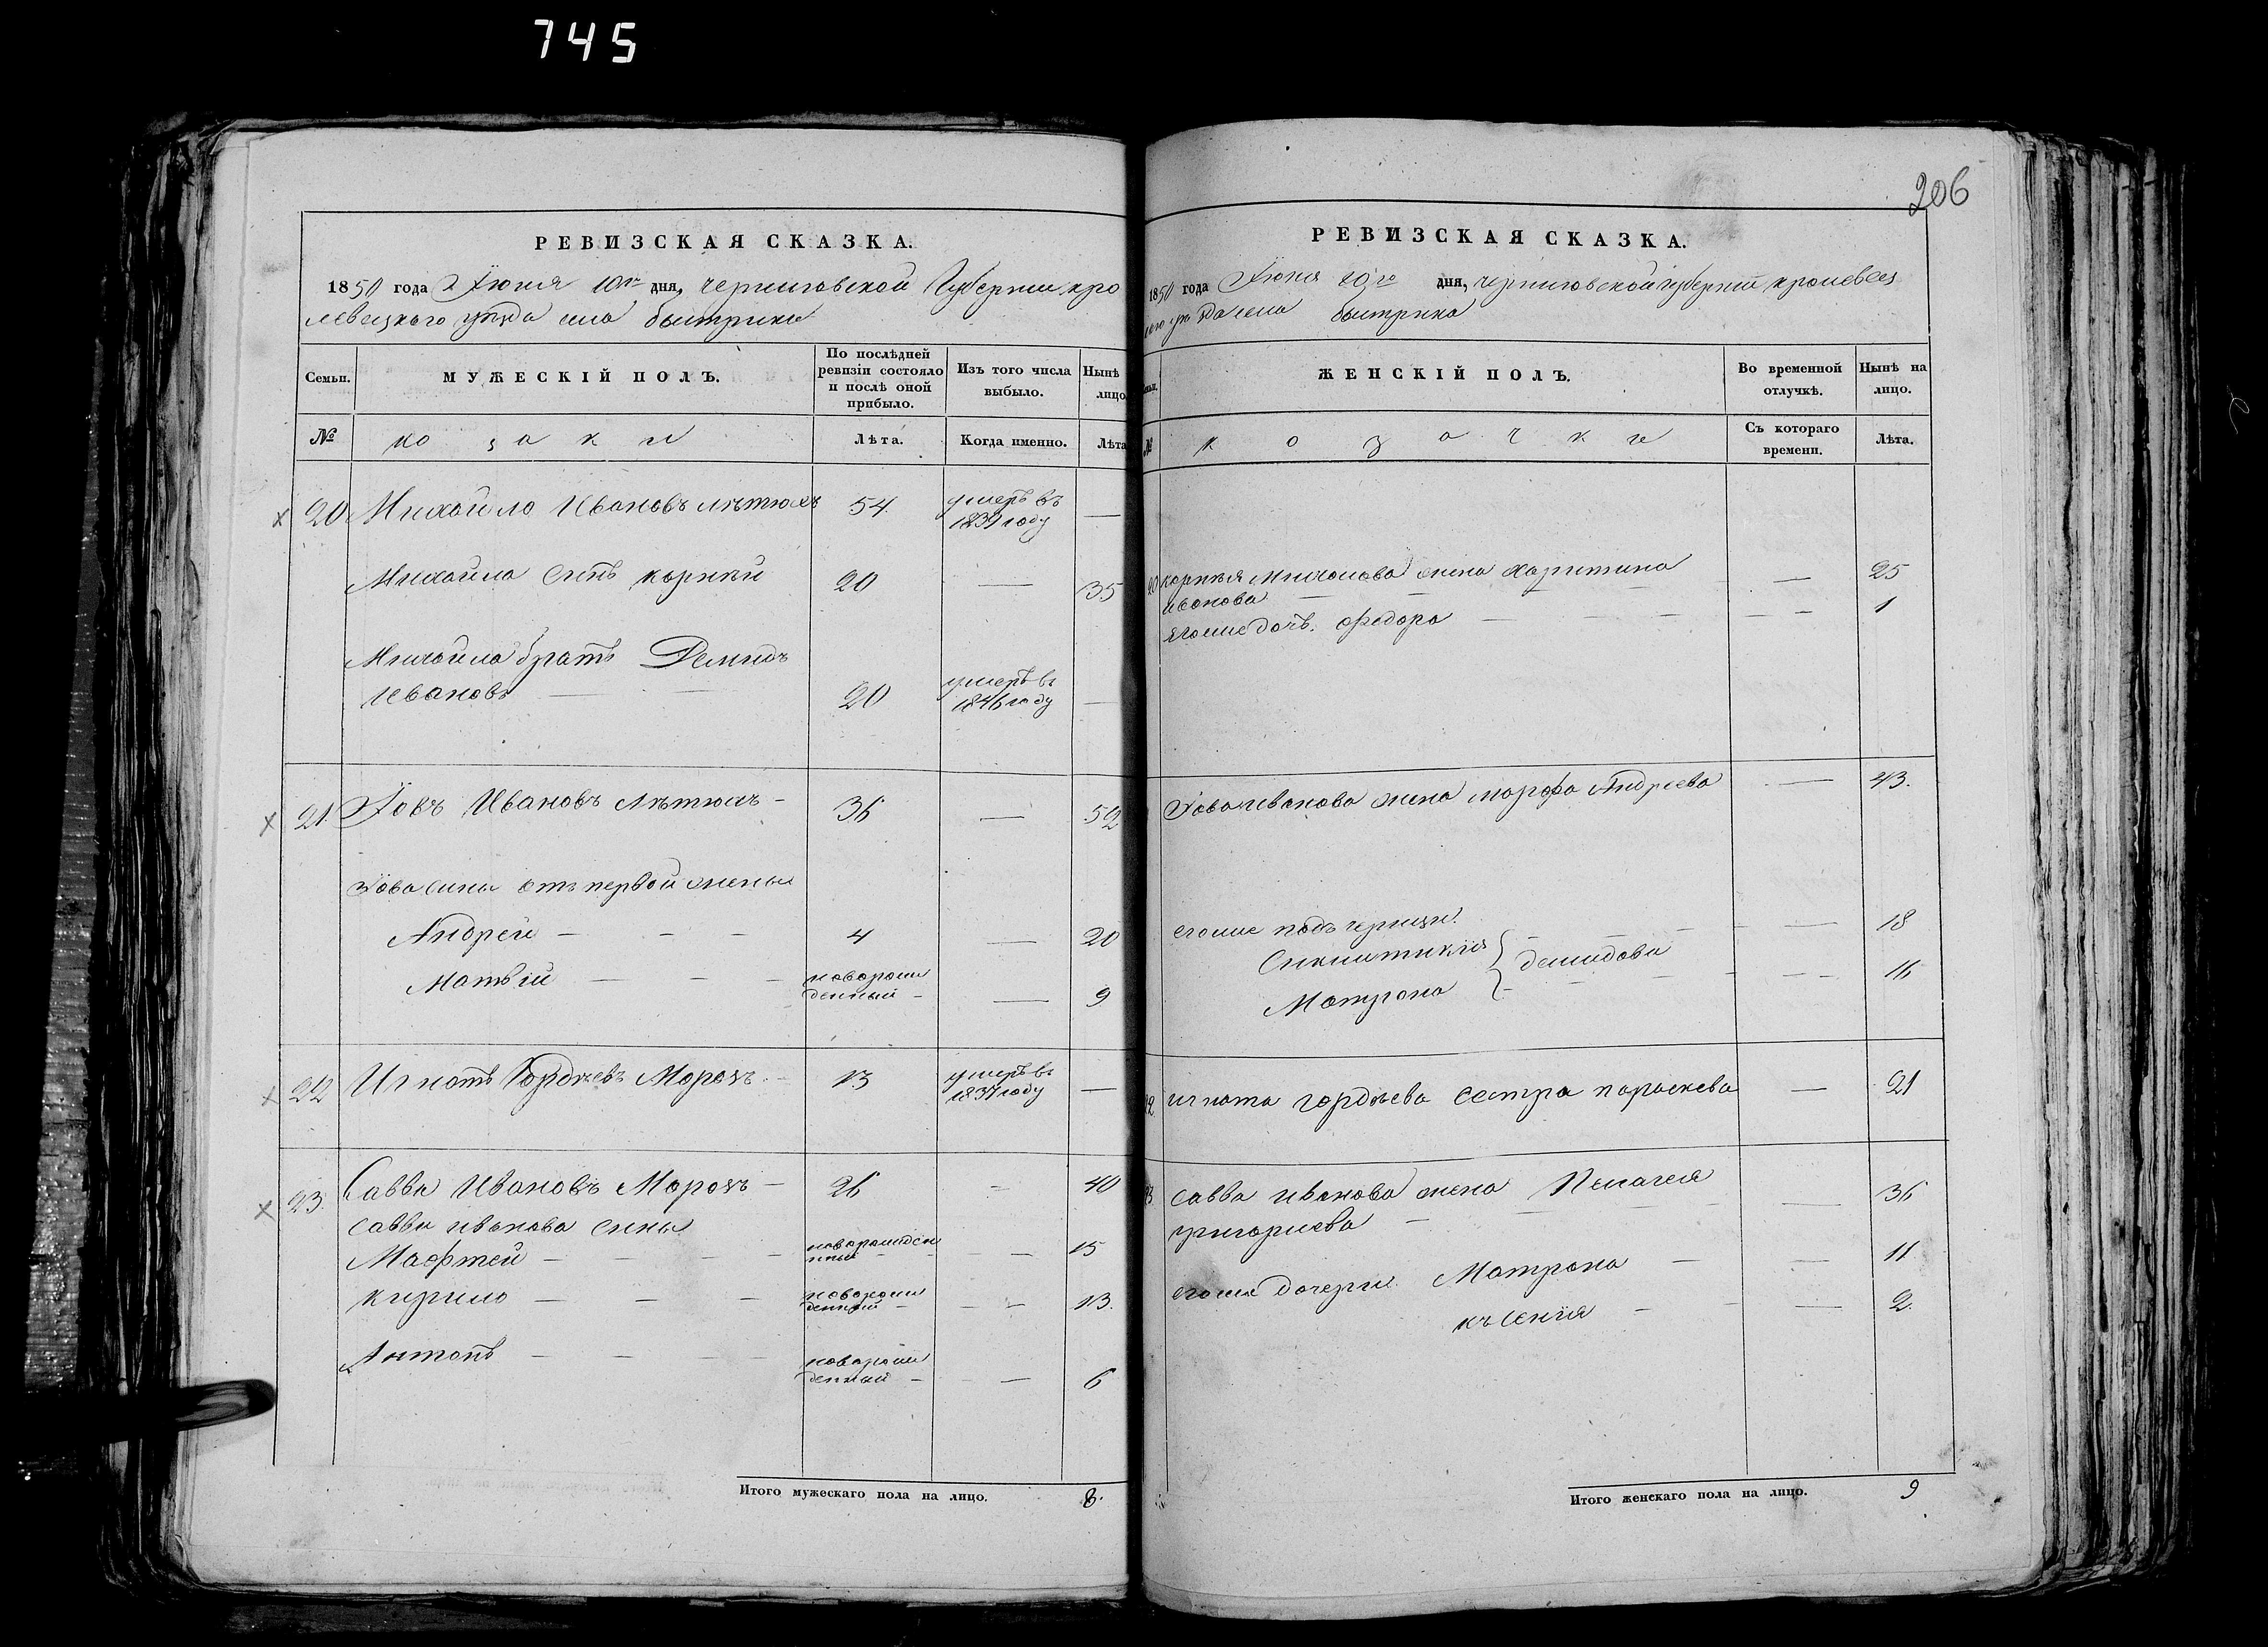 745
206
РЕВИЗСКАЯ СКАЗКА.
1850 года Іюня 10го дня, черниговской Губерніи кро
левецкаго уѣзда села быстрика
Семьи.
МУЖЕСКІЙ ПОЛЪ.
По послѣдней ревизіи состояло и послѣ оной прибыло.
Изъ того числа выбыло.
Нынѣ лицо
№
козаки
Лѣта.
Когда именно.
Лѣта
20 Михайло Ивановъ Лѣтюхъ 54 умеръ въ 1839 году —
Михайла сынъ корнѣй 20 — 35
Михайла братъ Демидъ
Ивановъ — 20 умеръ въ 1846 году —
21 Іовъ Ивановъ Лѣтюхъ — 36 — 52
Іова сыны отъ первой жены
Андрей — 4 — 20
Матвій — новорож
денный — — 9
22 Игнатъ Гордѣевъ Морозъ — 13 умеръ въ 1837 году —
23. Савва Ивановъ Морозъ — 26 — 40
Савви иванова сыны
Мафтей — новорожден
ный — 15
кирило — новорож
денный — — 13.
Антонъ — новорож
денный — — 6
Итого мужескаго пола на лицо. 8.
РЕВИЗСКАЯ СКАЗКА.
1850 года Іюня 10го дня, черниговской губерніи кролевец
кого уѣзда села быстрика
ЖЕНСКІЙ ПОЛЪ.
Во временной отлучкѣ.
Нынѣ на лицо.
№
козачки
Съ котораго времени.
Лѣта.
20 корнѣя Михайлова жена харитина — 25
иванова
его же дочь федора — 1
Іова иванова жена марфа Андреева — 43.
его же подчерицы
Синклитикія } демидови — 18
Матрона — 16
22 игната гордѣева сестра параскева — 21
23 савви иванова жена Пелагея — 36
григориева —
его же дочери Матрона — 11
къ сенія — 2.
Итого женскаго пола на лицо. 9